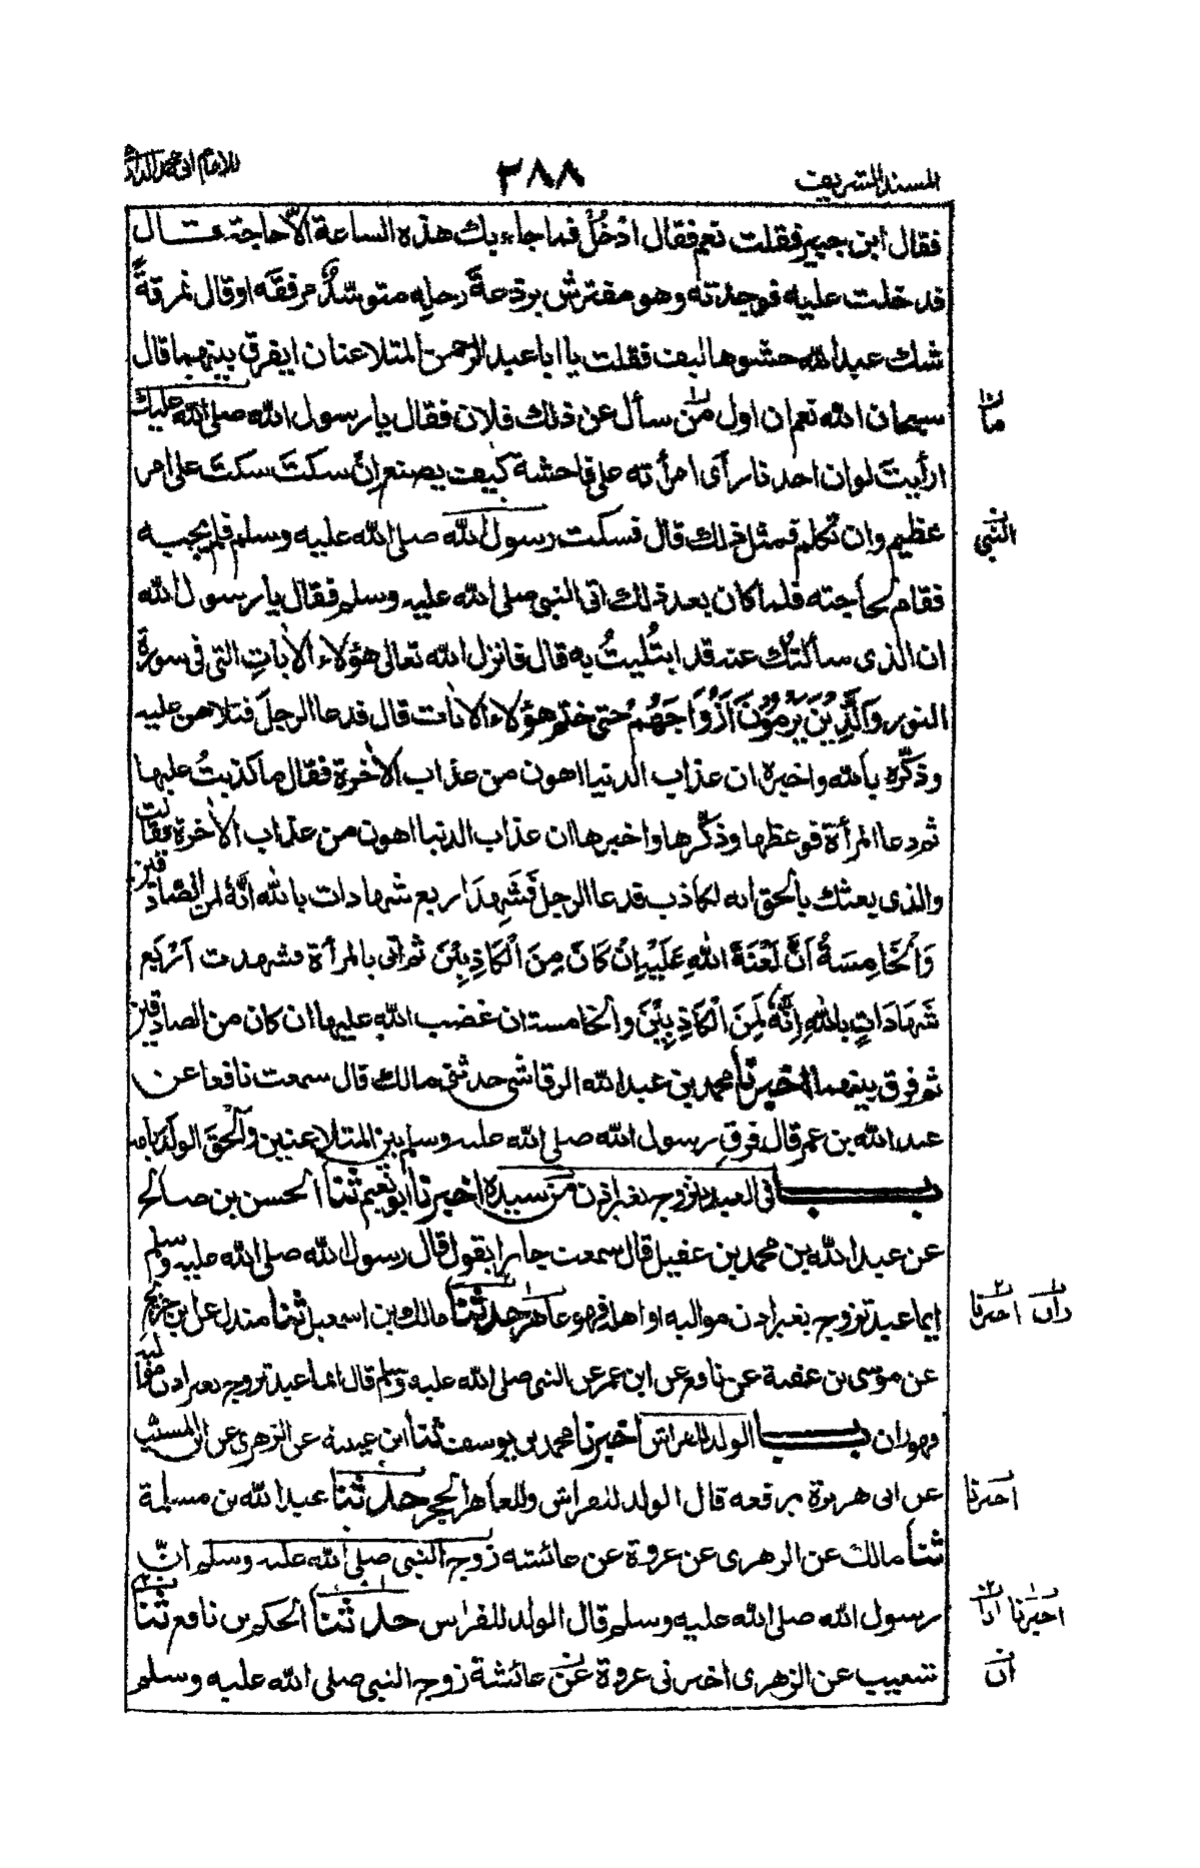 المسند الشريف
٣٨٨
للامام ابی محمد الدارمی
فقال ابن جبير فقلت نعم فقال اُدْخُلْ فما جاء بك هذه الساعة الّا حاجة قال
فدخلت عليه فوجدته وهو مفترش برذعةً رحلِه متوسّدٌ مرفقه او قال نمرقةً
شك عبد الله حشوها ليف فقلت يا ابا عبد الرحمن المتلاعنان ايفرق بينهما قال
سبحان الله نعم ان اول من سأل عن ذلك فلان فقال يا رسول الله صلى الله عليك
ارأيتَ لو ان احدنا رأى امرأته على فاحشة كيف يصنع اِنْ سكتَ سكتَ على امر
عظيم وان تكلم فمثل ذلك قال فسكت رسول الله صلى الله عليه وسلم فلم يجبه
فقام لحاجته فلما كان بعد ذلك اتى النبى صلى الله عليه وسلم فقال يا رسول الله
ان الذى سألتك عنه قد ابتُليتُ به قال فانزل الله تعالى هؤلاء الاٰياتِ التى فى سورة
النور وَالَّذِيْنَ يَرْمُوْنَ اَزْوَاجَهُمْ حتى ختم هؤلاء الاٰيات قال فدعا الرجلَ فتلاهن عليه
وذكّره بالله واخبره ان عذاب الدنيا اهون من عذاب الاٰخرة فقال ما كذبتُ عليها
ثم دعا المرأة فوعظها وذكّرها واخبرها ان عذاب الدنيا اهون من عذاب الاٰخرة فقالت
والذى بعثك بالحق انه لكاذب فدعا الرجل فَشَهِدَ اربع شهادات بالله انّهٗ لمن الصّادقين
وَالْخَامِسَةُ اَنَّ لَعْنَةَ اللهِ عَلَيْهِ اِنْ كَانَ مِنَ الْكَاذِبِيْنَ ثم اتى بالمرأة فشهدت اَرْبَع
شَهَادَاتٍ بِاللهِ اِنَّهٗ لَمِنَ الْكَاذِبِيْنَ والخامسة ان غضب الله عليها ان كان من الصادقين
ثم فرق بينهما اخبرنا محمد بن عبد الله الرقاشى حدثنى مالك قال سمعت نافعا عن
عبد الله بن عمر قال فرق رسول الله صلى الله عليه وسلم بين المتلاعنين والحق الولد بامه
باب فى العبد يتزوج بغير اذن من سيده اخبرنا ابو نعيم ثنا الحسن بن صالح
عن عبد الله بن محمد بن عقيل قال سمعت جابرا يقول قال رسول الله صلى الله عليه وسلم
ايما عبد تزوج بغير اذن مواليه او اهله فهو عاهر حدثنا مالك بن اسمعيل ثنا مندل عن ابن جريج
عن موسى بن عقبة عن نافع عن ابن عمر عن النبى صلى الله عليه وسلم قال ايما عبد تزوج بغير اذن مواليه
فهو زان باب الولد للفراش اخبرنا محمد بن يوسف ثنا ابن عيينة عن الزهرى عن ابن المسيب
عن ابى هريرة يرفعه قال الولد للفراش وللعاهر الحجر حدثنا عبد الله بن مسلمة
ثنا مالك عن الزهرى عن عروة عن عائشة زوج النبى صلى الله عليه وسلم انّ
رسول الله صلى الله عليه وسلم قال الولد للفراش حدثنا الحكم بن نافع ثنا
شعيب عن الزهرى اخبرنى عروة عن عائشة زوج النبى صلى الله عليه وسلم
ما
النبى
اخبرنا
اخبرنا
اخبرنا انا
ان